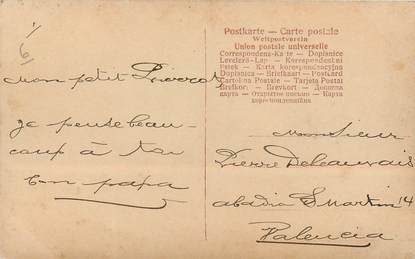 1/6
Mon petit Pierrot
je pense beau-
coup à toi
ton papa
Postkarte — Carte postale
Weltpostverein
Union postale universelle
Correspondenz-Karte — Dopisnice
Levelező-Lap — Korespondent
Lístek — Karta korespondencyjna
Dopisnica — Briefkaart — Postcard
Cartolina Postale — Tarjeta Postal
Brefkort — Brevkort — Дописна
карта — Открытое письмо — Карта
Monsieur
Pierre
abadia S Martin 14
Valencia